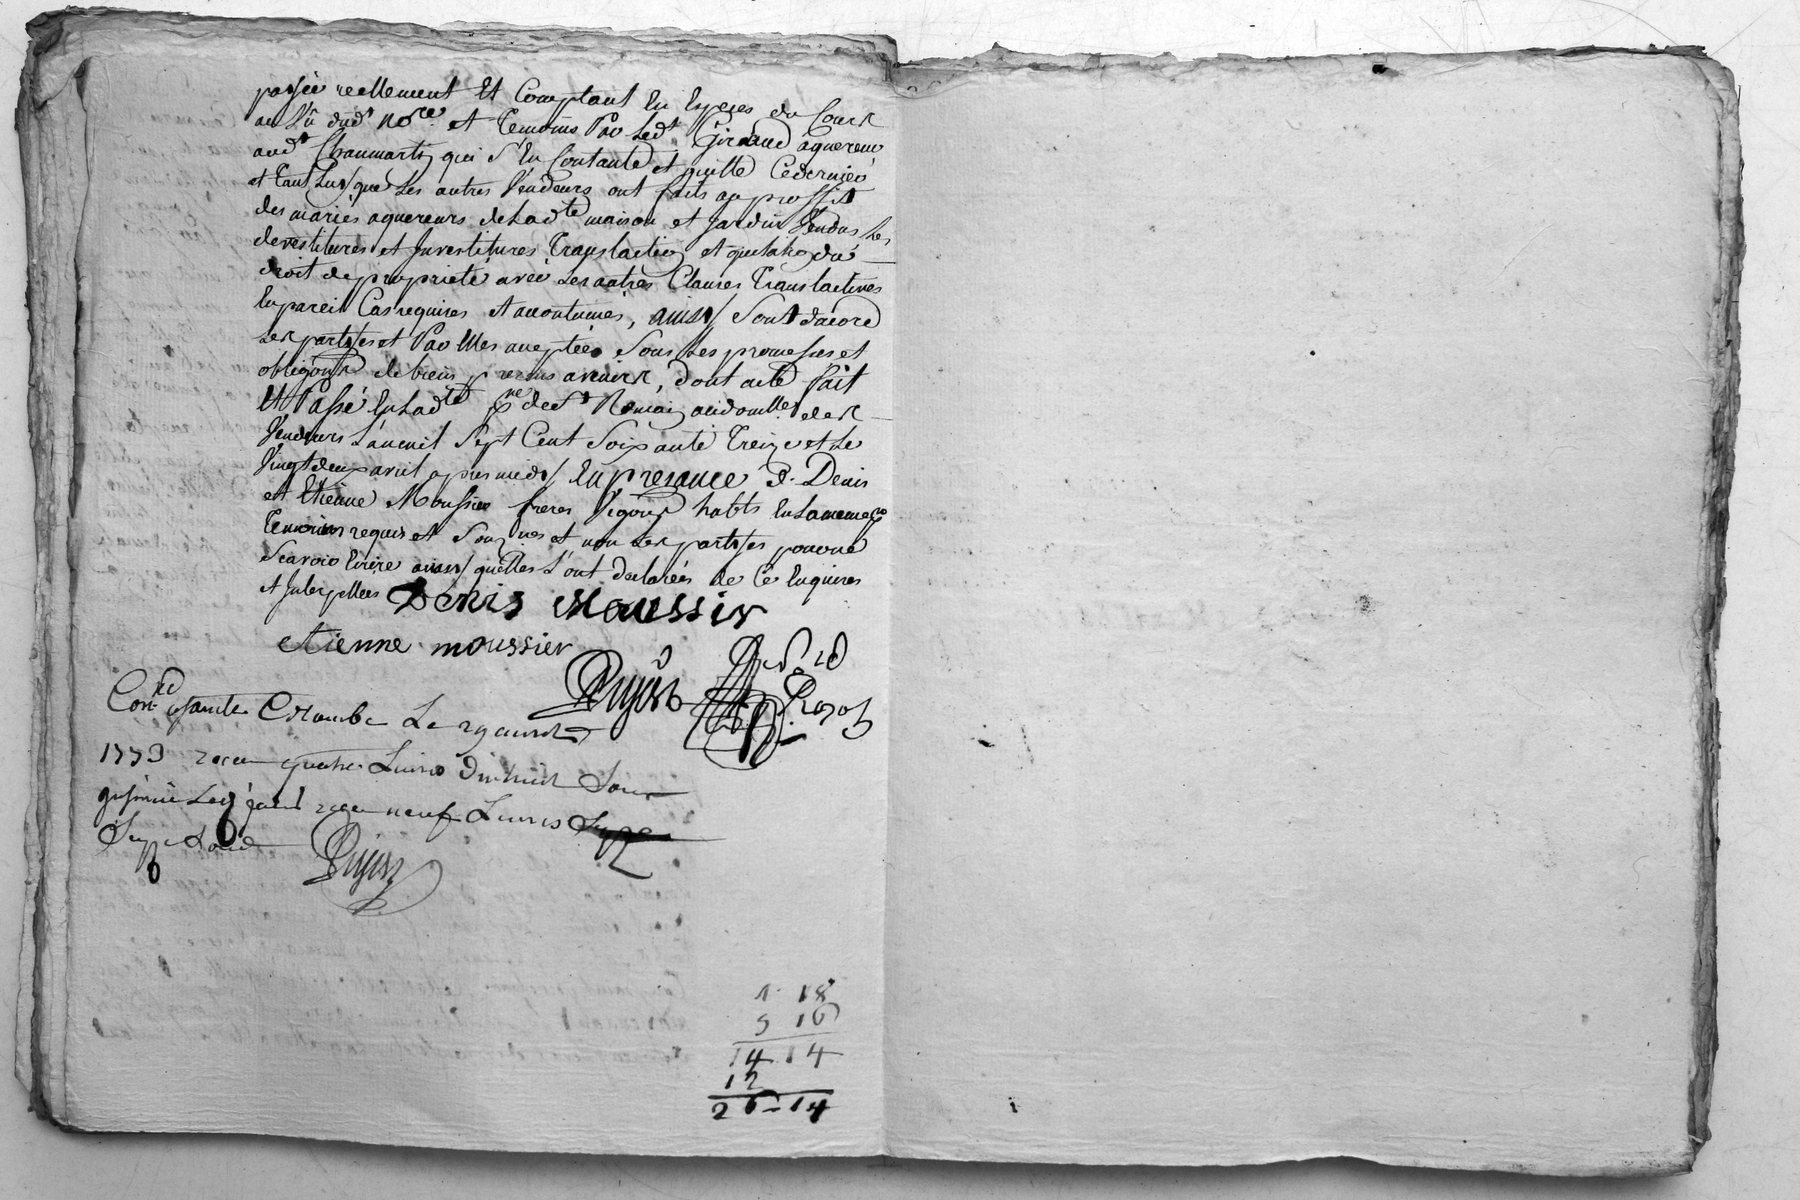 passée reellement Et Comptant En Espeses du Cours
au Vû dud.t no.re et Temoins Par Led.t Giraud aquereur
aud.t Chaumarti, qui s'En Contante et quitte Cedernier
et tant Luy que Les autres Vendeurs ont faits au proffit
des mariés aquereurs deLad.te maison et Jardin Vendus Les
devestitures et Investitures Translation et
droit de proprieté avec Les autres Clauses Translatives
En pareil Cas requises et accoutumées, ainsy Sont dacord
Les partyes et Par Elles acceptée Sous Les promesses et
oblig.ons de biens presens avenir, dont acte fait
Et Passé EnLad.te p.sse de S.t Romain audomille des
Vendeurs L'an mil Sept Cent Soixante Treize et Le
Vingt deux avril apres midy En presance d. Denis
et Etienne Moussier freres Vigons habts EnLameme p.sse
Temoins requis et Souz.nes et non Les partyes pour ne
Scavoir Ecrire ainsy quelles L'ont declarées de Ce Enquises
et Interpellées Denis Moussier
etienne moussier
Pujin
Con.lé a sainte Colombe Le
1773 recu quatre Livres Dix huit Sous
insinué Led. jour recu neuf Livres
Seize Sous Pujin
1 18
9 16
14 14
12
26 - 14